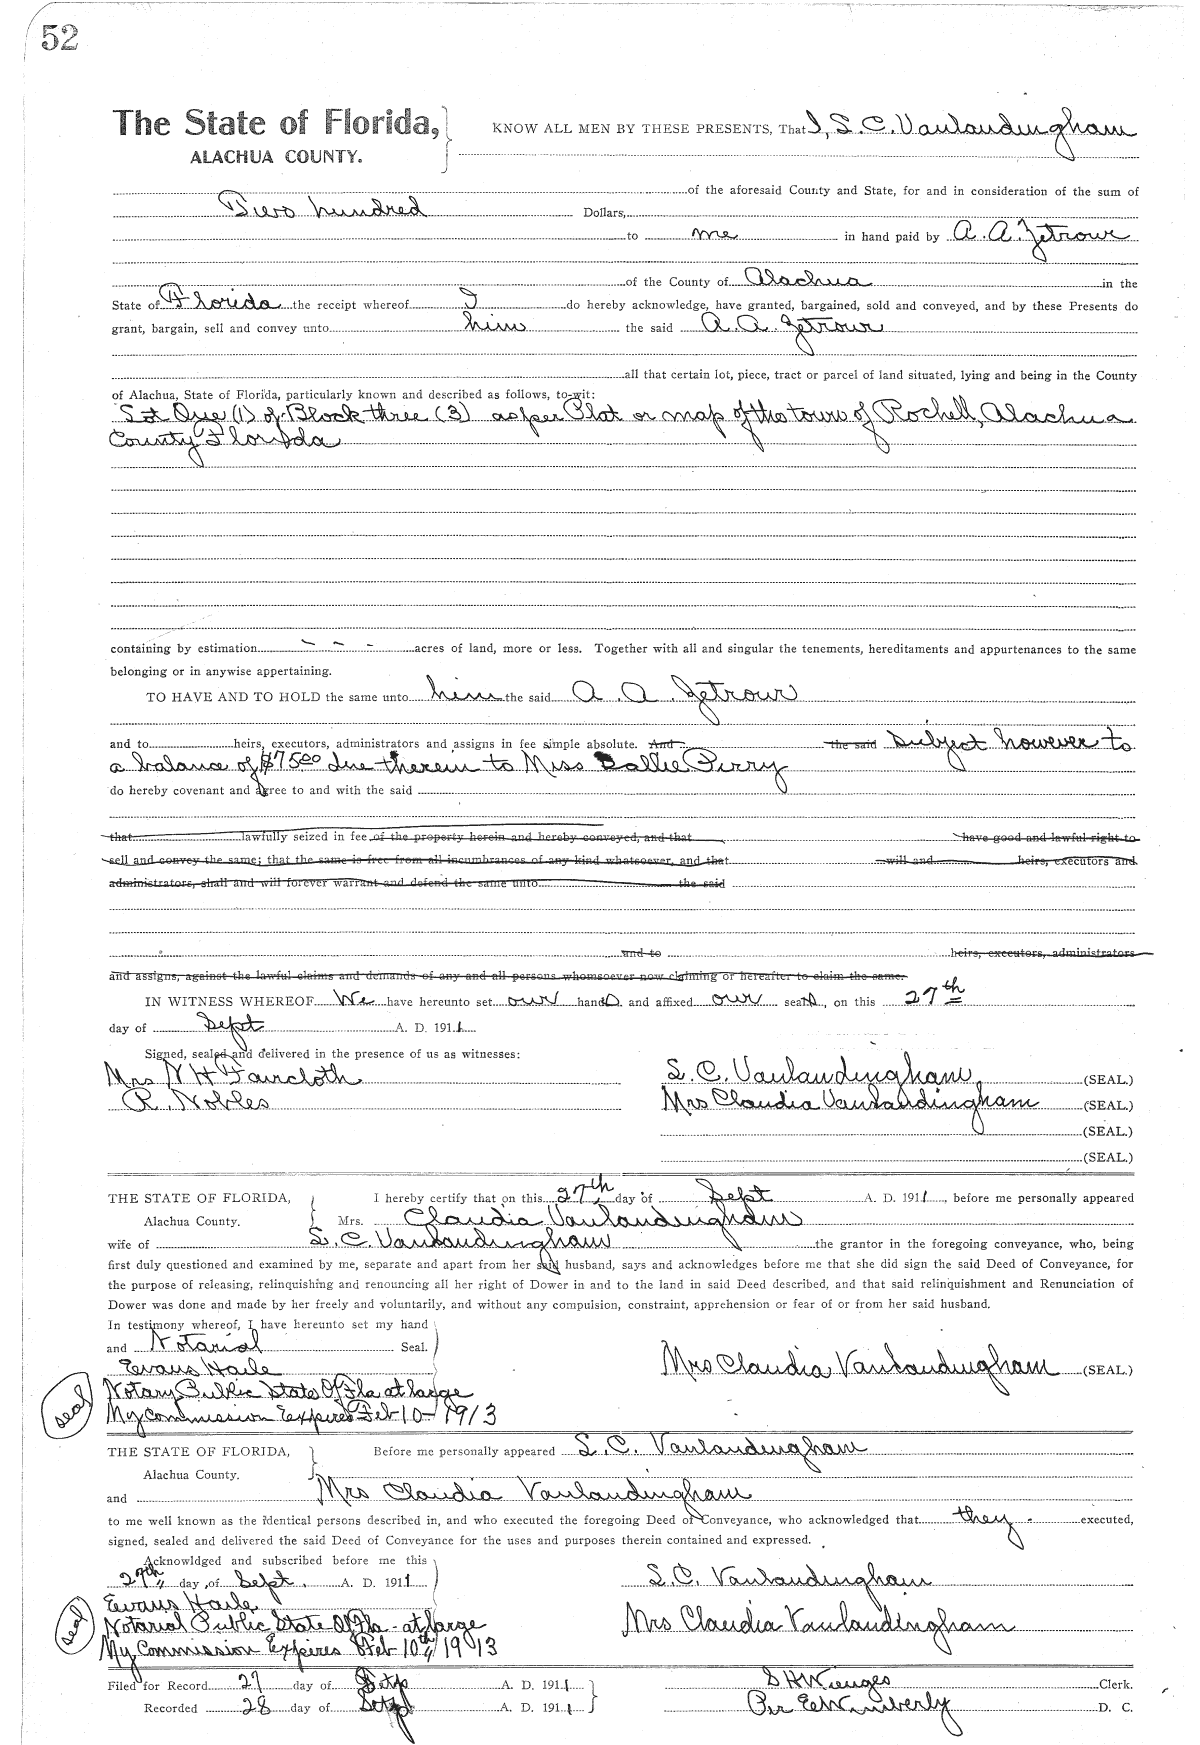 52
The State of Florida, KNOW ALL MEN BY THESE PRESENTS, That I, S. C. Vanlandingham
ALACHUA COUNTY.
of the aforesaid County and State, for and in consideration of the sum of
Two hundred Dollars,
to me in hand paid by A. A. Zetrour
of the County of Alachua in the
State of Florida the receipt whereof I do hereby acknowledge, have granted, bargained, sold and conveyed, and by these Presents do
grant, bargain, sell and convey unto him the said A. A. Zetrour
all that certain lot, piece, tract or parcel of land situated, lying and being in the County
of Alachua, State of Florida, particularly known and described as follows, to-wit:
Lot One (1) of Block three (3) as per Plat or map of the town of Rochell, Alachua
County Florida
containing by estimation - - - acres of land, more or less. Together with all and singular the tenements, hereditaments and appurtenances to the same
belonging or in anywise appertaining.
TO HAVE AND TO HOLD the same unto him the said A. A. Zetrour
and to heirs, executors, administrators and assigns in fee simple absolute. And the said subject however to
a balance of $75.00 due therein to Miss Sallie Perry
do hereby covenant and agree to and with the said
that lawfully seized in fee of the property herein and hereby conveyed, and that have good and lawful right to
sell and convey the same; that the same is free from all incumbrances of any kind whatsoever, and that will and heirs, executors and
administrators, shall and will forever warrant and defend the same unto the said
and to heirs, executors, administrators
and assigns, against the lawful claims and demands of any and all persons whomsoever now claiming or hereafter to claim the same.
IN WITNESS WHEREOF We have hereunto set our hands and affixed our seals, on this 27th
day of Sept A. D. 1911.
Signed, sealed and delivered in the presence of us as witnesses:
Mrs N H Faircloth S. C. Vanlandingham (SEAL.)
R. Nobles Mrs Claudia Vanlandingham (SEAL.)
(SEAL.)
(SEAL.)
THE STATE OF FLORIDA, I hereby certify that on this 27th day of Sept A. D. 1911, before me personally appeared
Alachua County. Mrs. Claudia Vanlandingham
wife of S. C. Vanlandingham the grantor in the foregoing conveyance, who, being
first duly questioned and examined by me, separate and apart from her said husband, says and acknowledges before me that she did sign the said Deed of Conveyance, for
the purpose of releasing, relinquishing and renouncing all her right of Dower in and to the land in said Deed described, and that said relinquishment and Renunciation of
Dower was done and made by her freely and voluntarily, and without any compulsion, constraint, apprehension or fear of or from her said husband.
In testimony whereof, I have hereunto set my hand
and Notarial Seal.
Evans Haile Mrs Claudia Vanlandingham (SEAL)
seal Notary Public State Of Fla at large
My Commission Expires Feb 10-1913
THE STATE OF FLORIDA, Before me personally appeared S. C. Vanlandingham
Alachua County.
and Mrs Claudia Vanlandingham
to me well known as the identical persons described in, and who executed the foregoing Deed of Conveyance, who acknowledged that they executed,
signed, sealed and delivered the said Deed of Conveyance for the uses and purposes therein contained and expressed.
Acknowldged and subscribed before me this
27th day of Sept. A. D. 1911 S. C. Vanlandingham
Evans Haile
seal Notarial Public State Of Fla - at large Mrs Claudia Vanlandingham
My Commission Expires Feb 10th 1913
Filed for Record 27 day of Sept A. D. 1911 S H Wienges Clerk.
Recorded 28 day of Sept A. D. 1911 Per E Wimberly D. C.